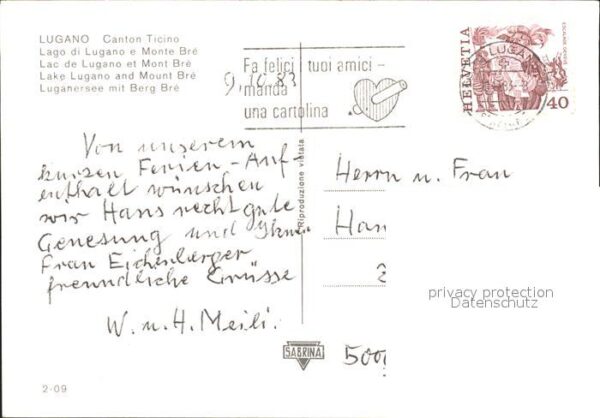 LUGANO Canton Ticino
Lago di Lugano e Monte Brè
Lac de Lugano et Mont Brè
Lake Lugano and Mount Brè
Luganersee mit Berg Brè
Fa felici i tuoi amici -
manda
una cartolina
9.10.83
LUGANO
HELVETIA
40
Von unserem
kurzen Ferien-Auf-
enthalt wünschen
wir Hans recht gute
Genesung und Ihnen
Frau Eichenberger
freundliche Grüsse
W. u. H. Meili.
Riproduzione vietata
Herrn u. Frau
Han
privacy protection
Datenschutz
SABRINA
500
2-09